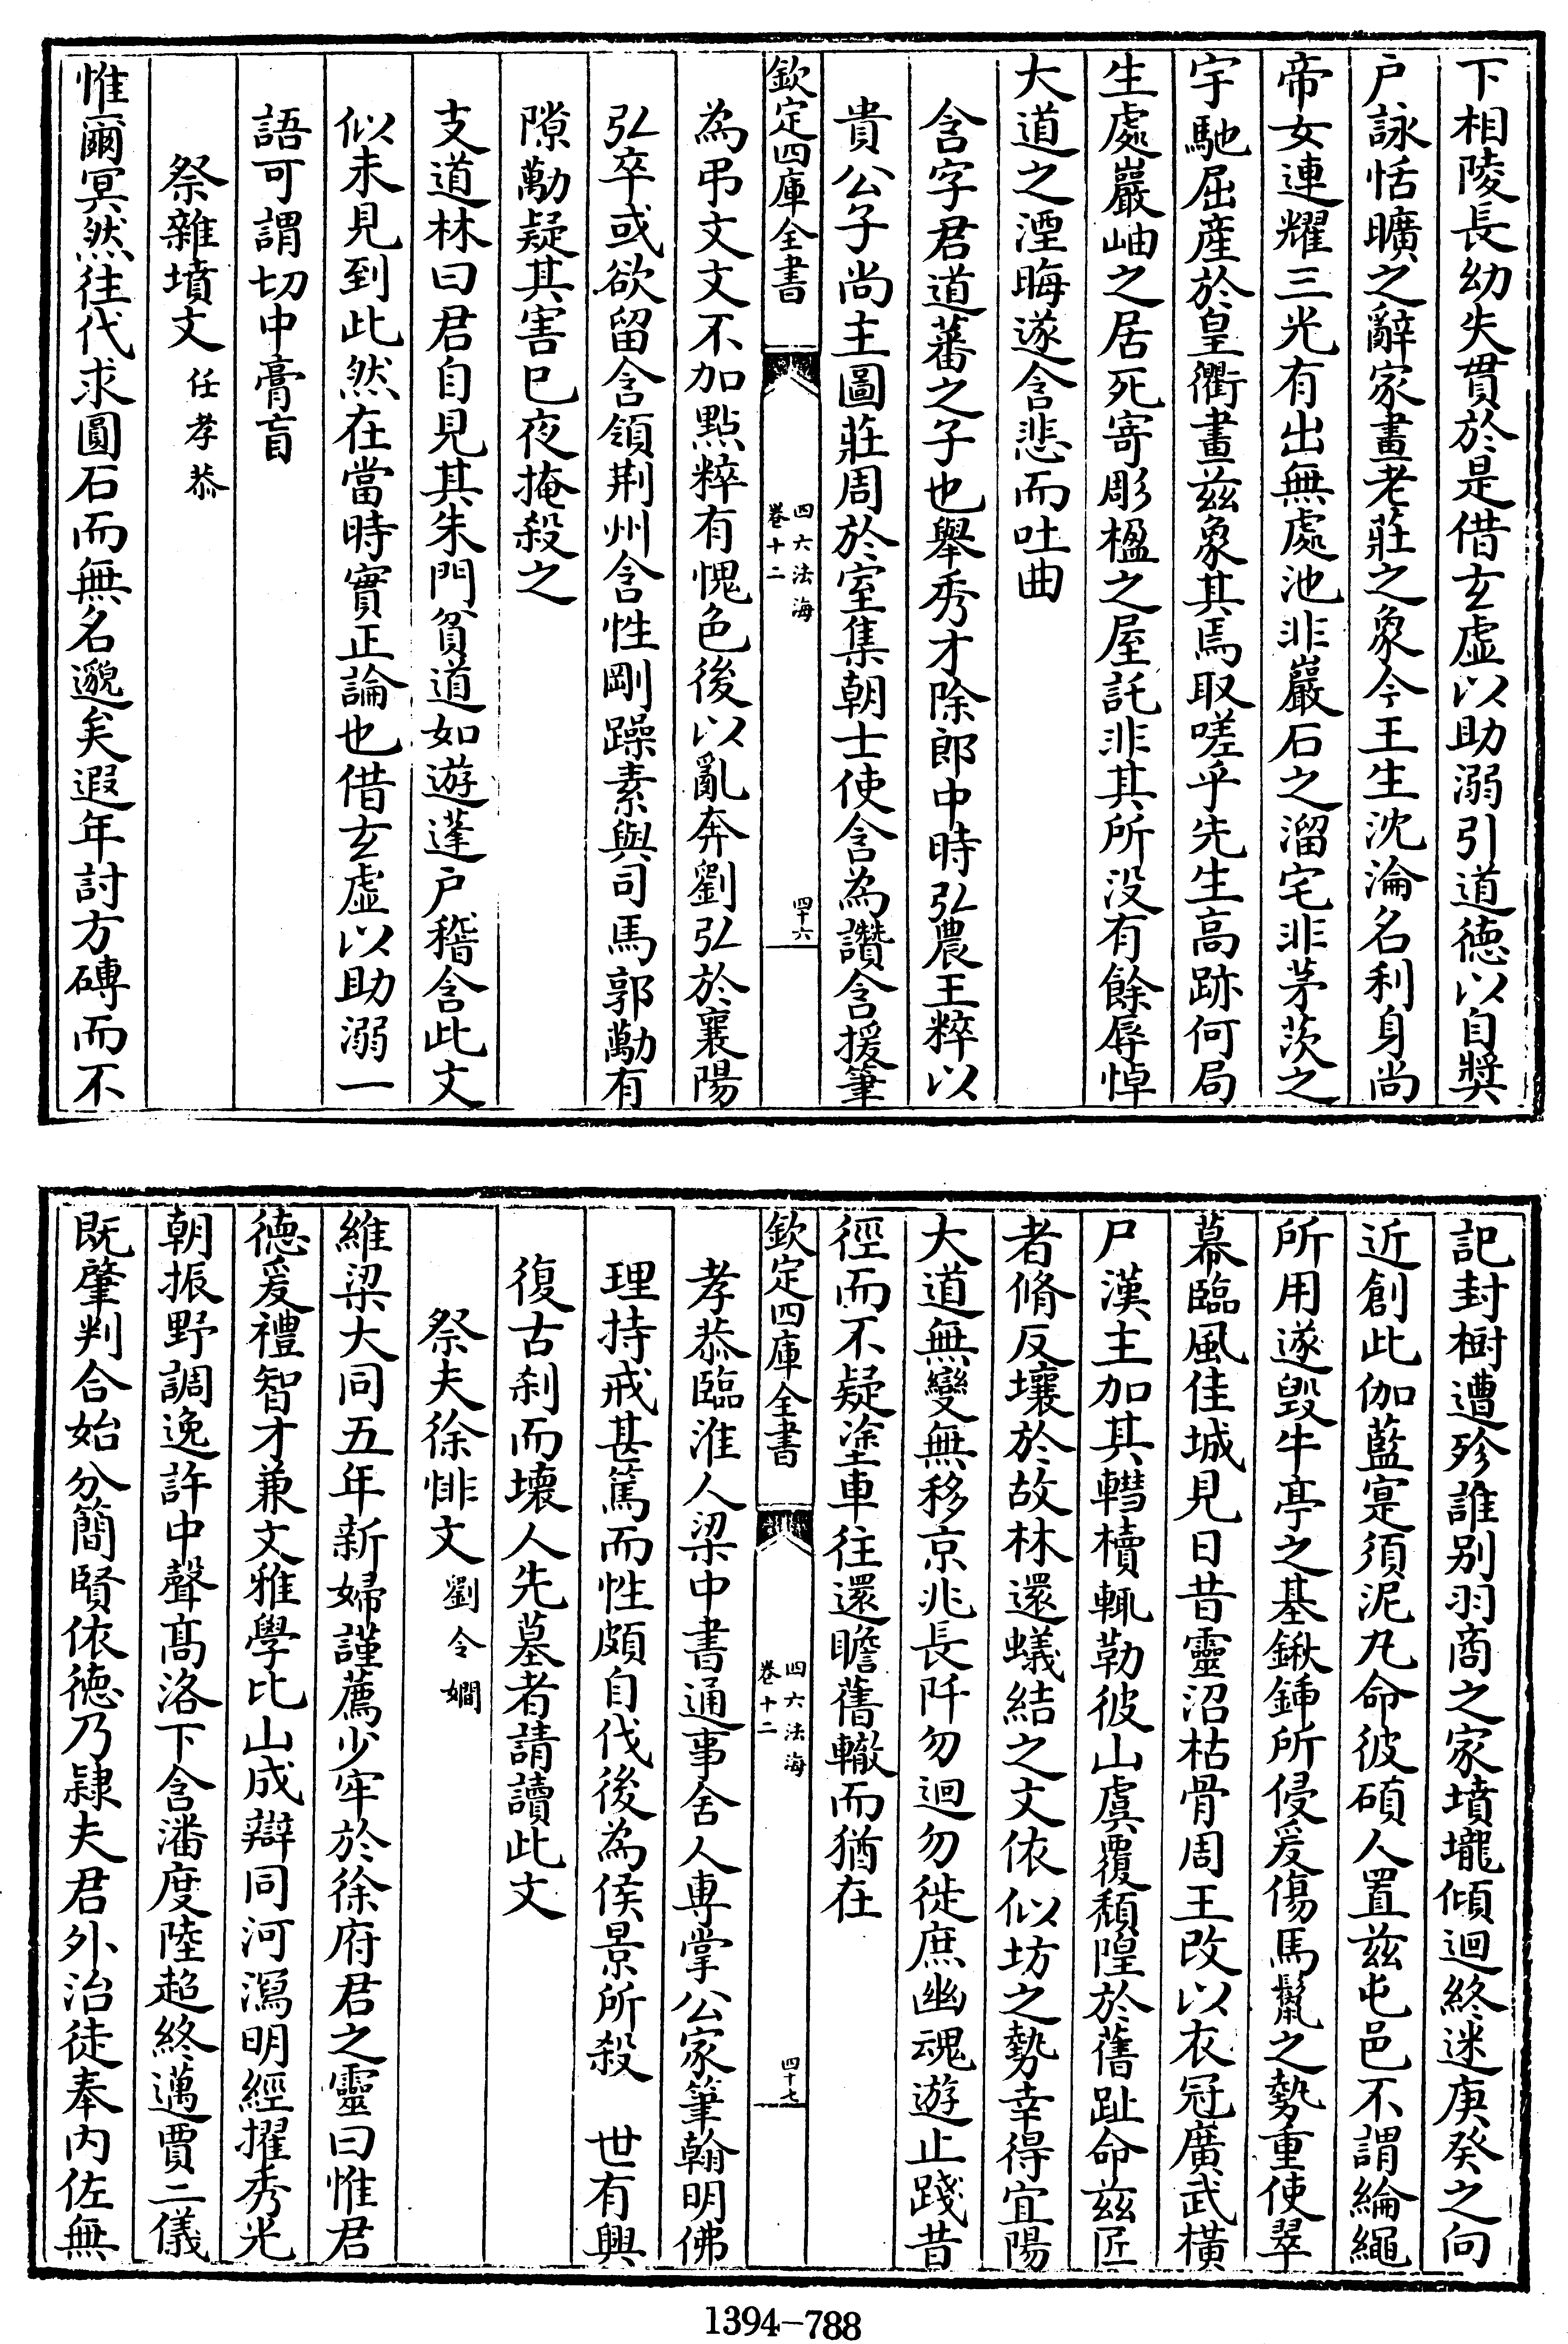 下相陵長幼失貫於是借玄虛以助溺引道徳以自奬
户詠恬曠之辭家畫老莊之象今王生沈淪名利身尚
帝女連耀三光有出無處池非巖石之溜宅非茅茨之
宇馳屈産於皇衢畫兹象其焉取嗟乎先生高跡何局
生處巖岫之居死寄彫楹之屋託非其所没有餘辱悼
大道之湮晦遂含悲而吐曲
含字君道蕃之子也舉秀才除郎中時弘農王粹以
貴公子尚主圖莊周於室集朝士使含為讚含援筆
欽定四庫全書
四六法海
卷十二
四十六
為弔文文不加點粹有愧色後以亂奔劉弘於襄陽
弘卒或欲留含領荆州含性剛躁素與司馬郭勱有
隙勱疑其害已夜掩殺之
支道林曰君自見其朱門貧道如遊蓬户稽含此文
似未見到此然在當時實正論也借玄虛以助溺一
語可謂切中膏盲
祭雜墳文 任孝恭
惟爾冥然往代求圓石而無名邈矣遐年討方磚而不
記封樹遭殄誰别羽商之家墳壠傾迴終迷庚癸之向
近創此伽藍寔須泥丸命彼碩人置兹屯邑不謂綸繩
所用遂毁牛亭之基鍬鍤所侵爰傷馬鬛之勢重使翠
幕臨風佳城見日昔靈沼枯骨周王改以衣冠廣武横
尸漢主加其轊櫝輒勒彼山虞覆頹隍於舊趾命兹匠
者脩反壤於故林還蟻結之文依似坊之勢幸得宜陽
大道無變無移京兆長阡勿迴勿徙庶幽魂遊止踐昔
徑而不疑塗車往還瞻舊轍而猶在
欽定四庫全書
四六法海
卷十二
四十七
孝恭臨淮人梁中書通事舍人専掌公家筆翰明佛
理持戒甚篤而性頗自伐後為侯景所殺　世有興
復古刹而壞人先墓者請讀此文
祭夫徐悱文 劉令嫺
維梁大同五年新婦謹薦少牢於徐府君之靈曰惟君
徳爰禮智才兼文雅學比山成辯同河瀉明經擢秀光
朝振野調逸許中聲髙洛下含潘度陸超終邁賈二儀
既肇判合始分簡賢依徳乃隷夫君外治徒奉内佐無
1394-788